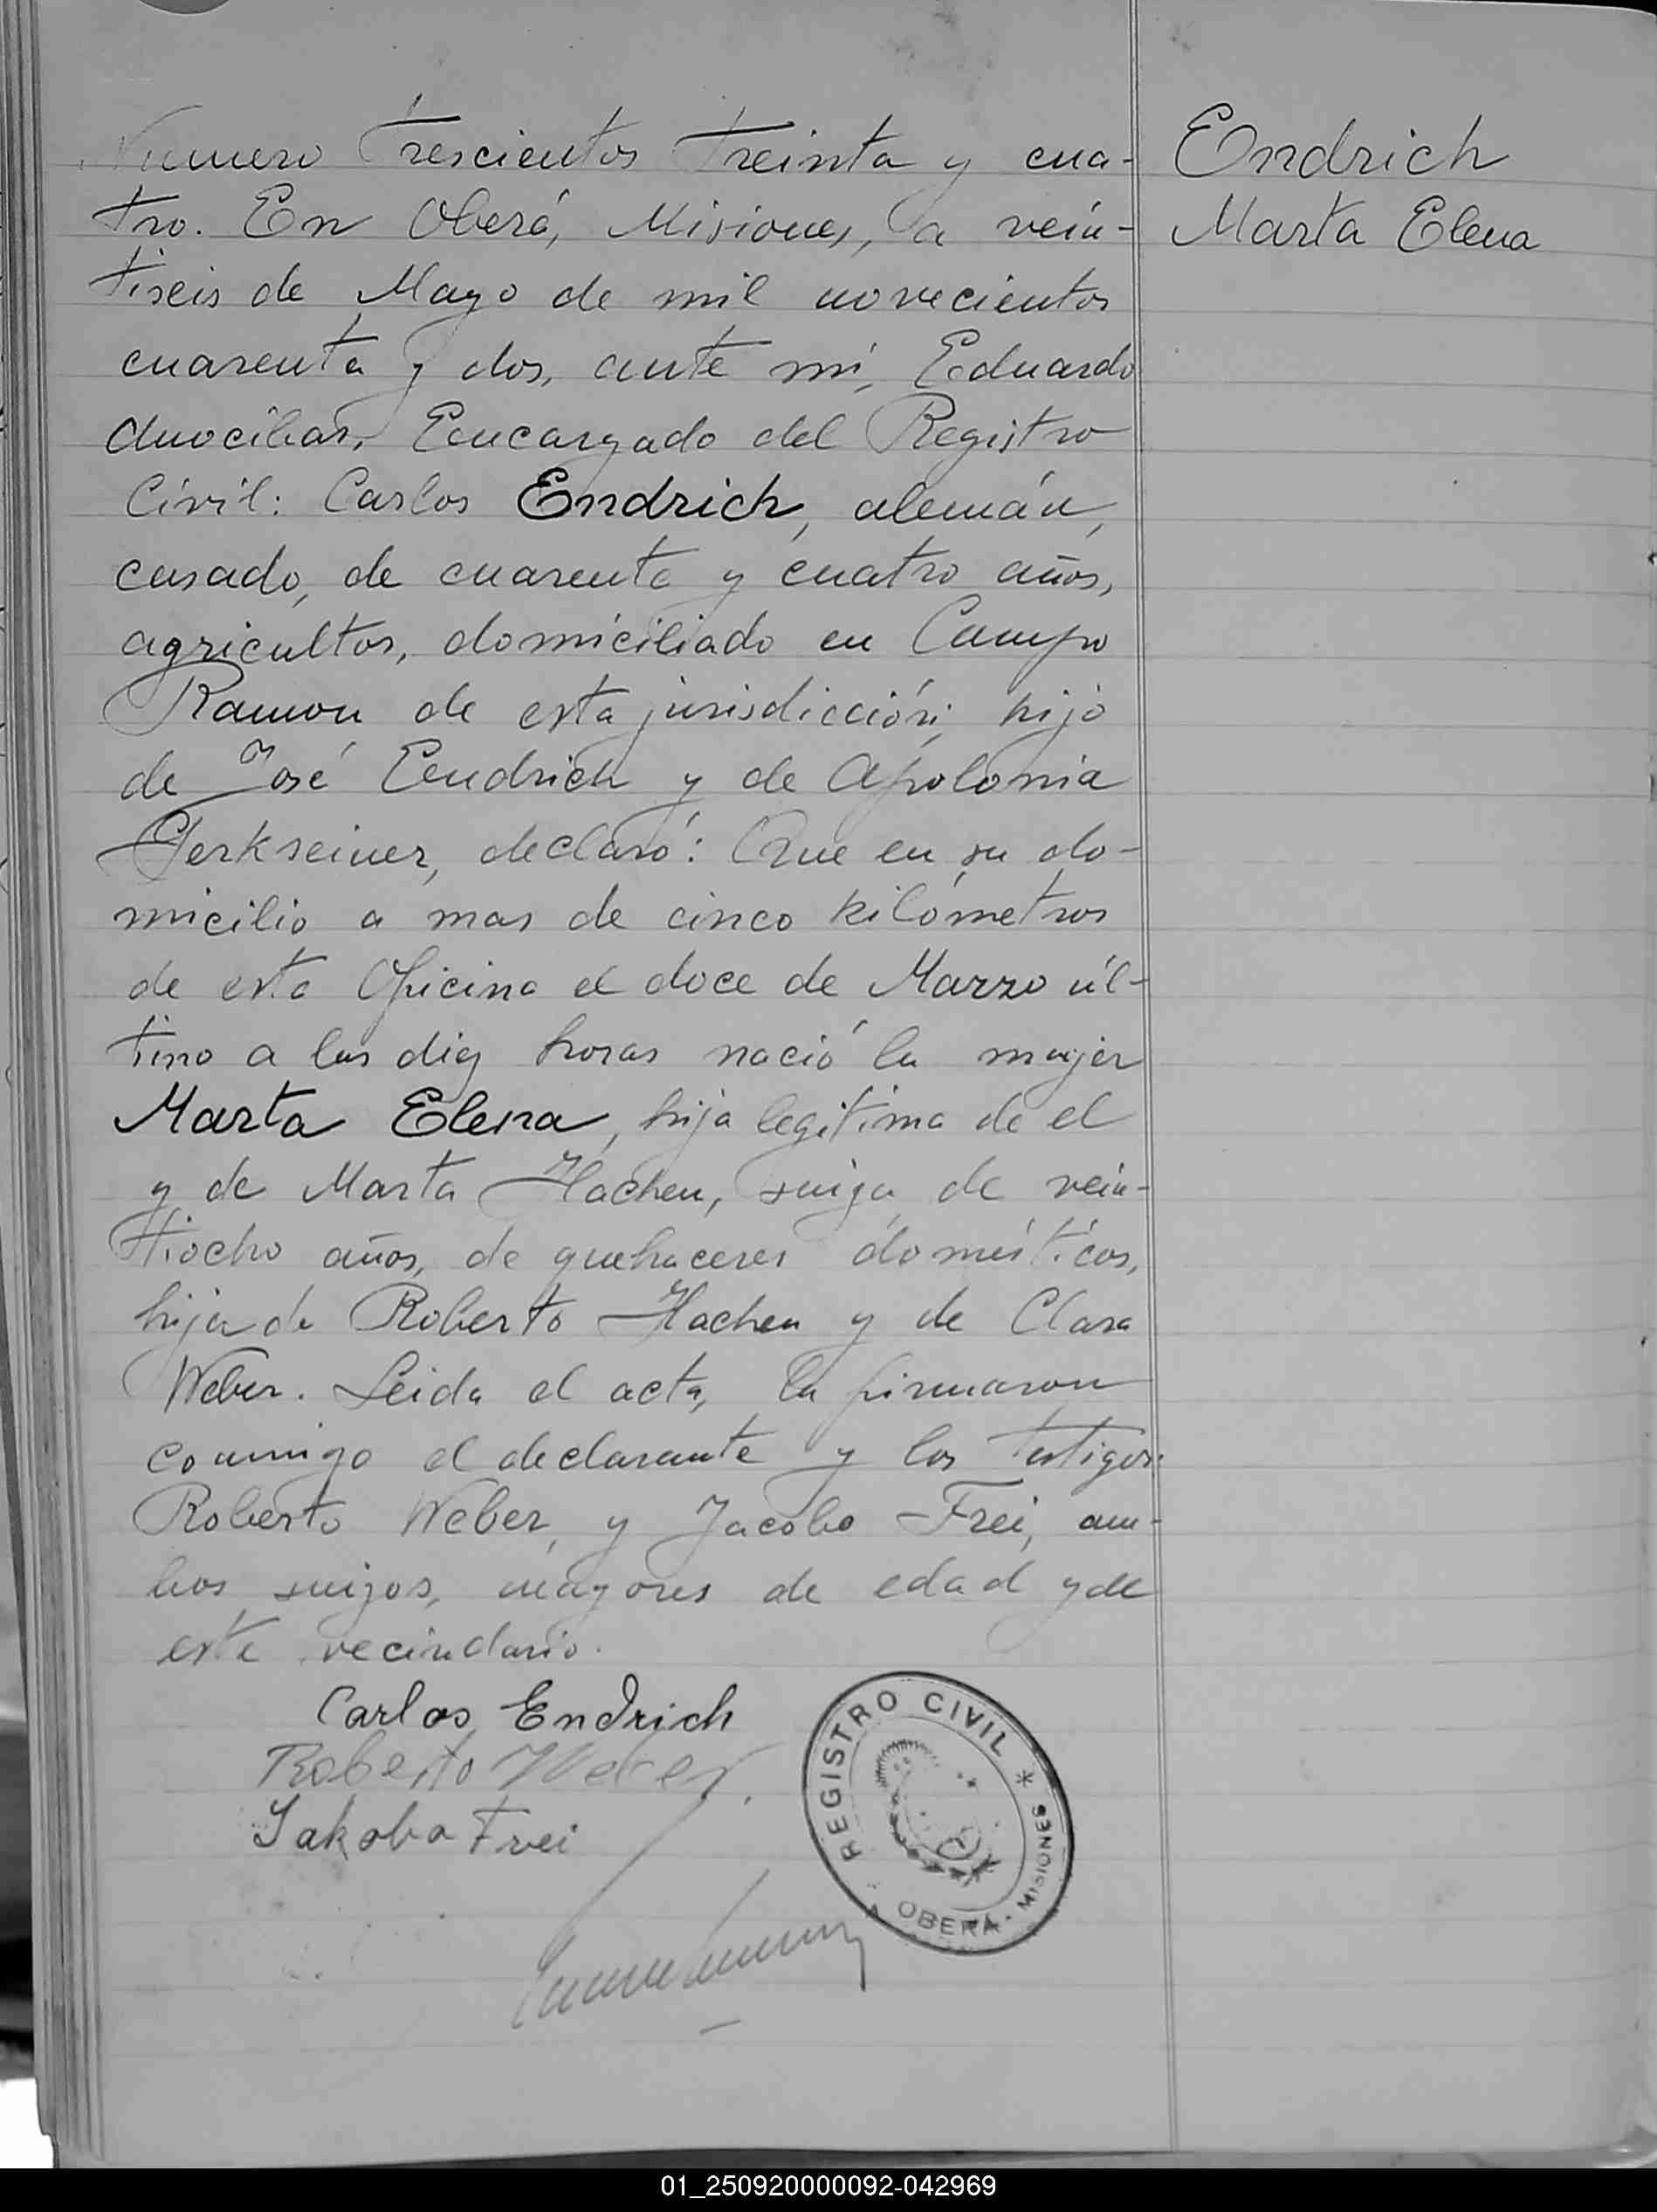 Numero Trescientos Treinta y cua-
tro. En Oberá, Misiones, a vein-
tiseis de Mayo de mil novecientos
cuarenta y dos, ante mi, Eduardo
Encargado del Registro
Civil: Carlos Endrich, alemán,
casado, de cuarenta y cuatro años,
agricultor, domiciliado en Campo
Ramon de esta jurisdicción, hijo
de José Endrich y de Apolonia
declaró: Que en su do-
micilio a mas de cinco kilómetros
de esta Oficina el doce de Marzo úl-
timo a las diez horas nació la mujer
Marta Elena, hija legitima de el
y de Marta Hachen, suiza, de vein-
tiocho años, de quehaceres domésticos,
hija de Roberto Hachen y de Clara
Weber. Leida el acta, la firmaron
conmigo el declarante y los testigos:
Roberto Weber, y Jacobo Frei, am-
bos suizos, mayores de edad y de
este vecindario.
Carlos Endrich
Roberto Weber.
Jakobo Frei
Endrich
Marta Elena
REGISTRO CIVIL * OBERÁ - MISIONES
01_250920000092-042969